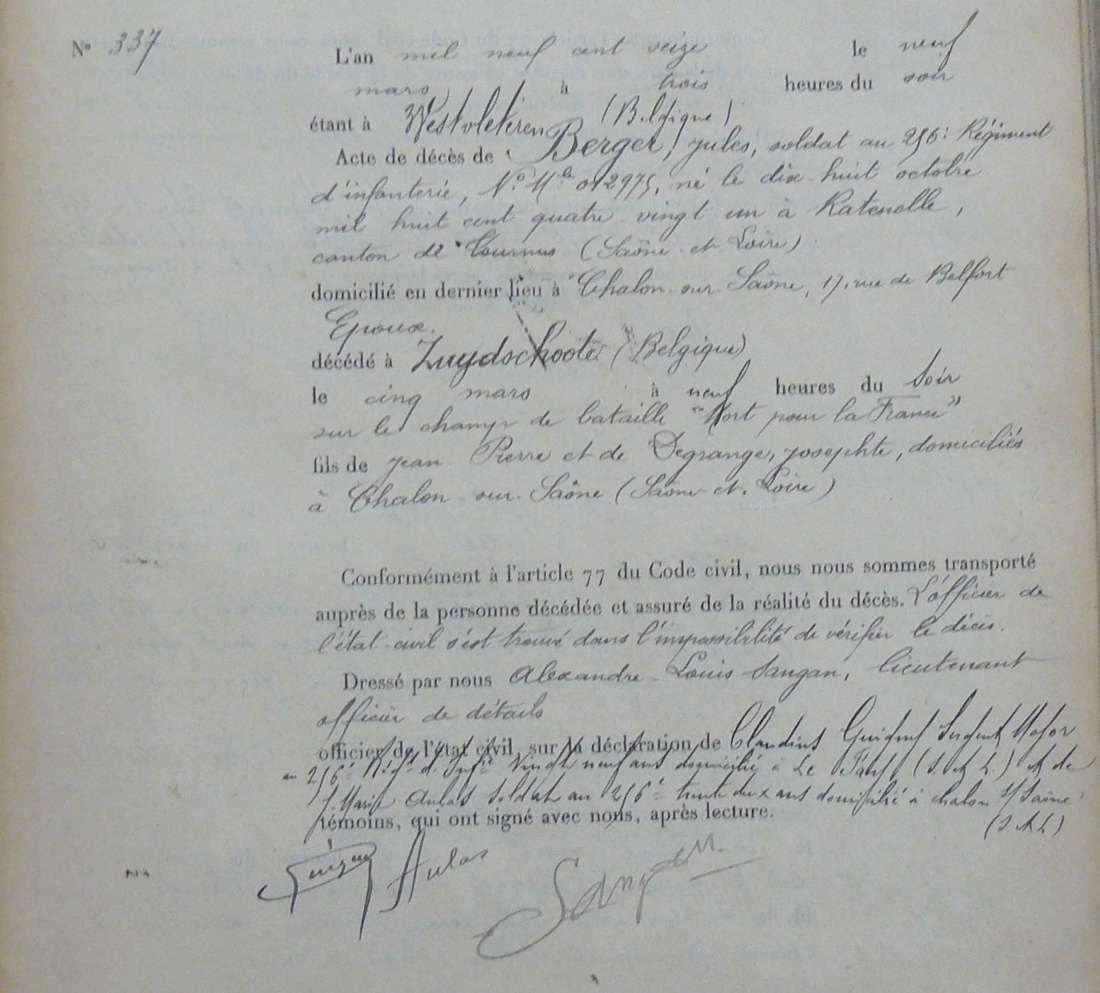 N° 337
L'an mil neuf cent seize le neuf
mars à trois heures du soir
étant à Westvleteren (Belgique)
Acte de décès de Berger, Jules, soldat au 256e Régiment
d'infanterie, N° Mle 012975, né le dix-huit octobre
mil huit cent quatre vingt un à Ratenelle,
canton de Tournus (Saône-et-Loire)
domicilié en dernier lieu à Chalon-sur-Saône, 17, rue de Belfort
Epoux.
décédé à Zuydschoote (Belgique)
le cinq mars à neuf heures du Soir
sur le champ de bataille "Mort pour la France"
fils de Jean Pierre et de Degrange, Josephte, domiciliés
à Chalon-sur-Saône (Saône-et-Loire)
Conformément à l'article 77 du Code civil, nous nous sommes transporté
auprès de la personne décédée et assuré de la réalité du décès. L'officier de
l'état-civil s'est trouvé dans l'impossibilité de vérifier le décès.
Dressé par nous Alexandre-Louis Sangan, lieutenant
officier de détails
officier de l'état civil, sur la déclaration de Claudius Sergent Major
au 256e Régt d'Infie Vingt neuf ans domicilié à Le (S. & L.) et de
Marie Aulas Soldat au 256e trente deux ans domicilié à Chalon s/ Saône
témoins, qui ont signé avec nous, après lecture. (S & L)
Aulas Sangan